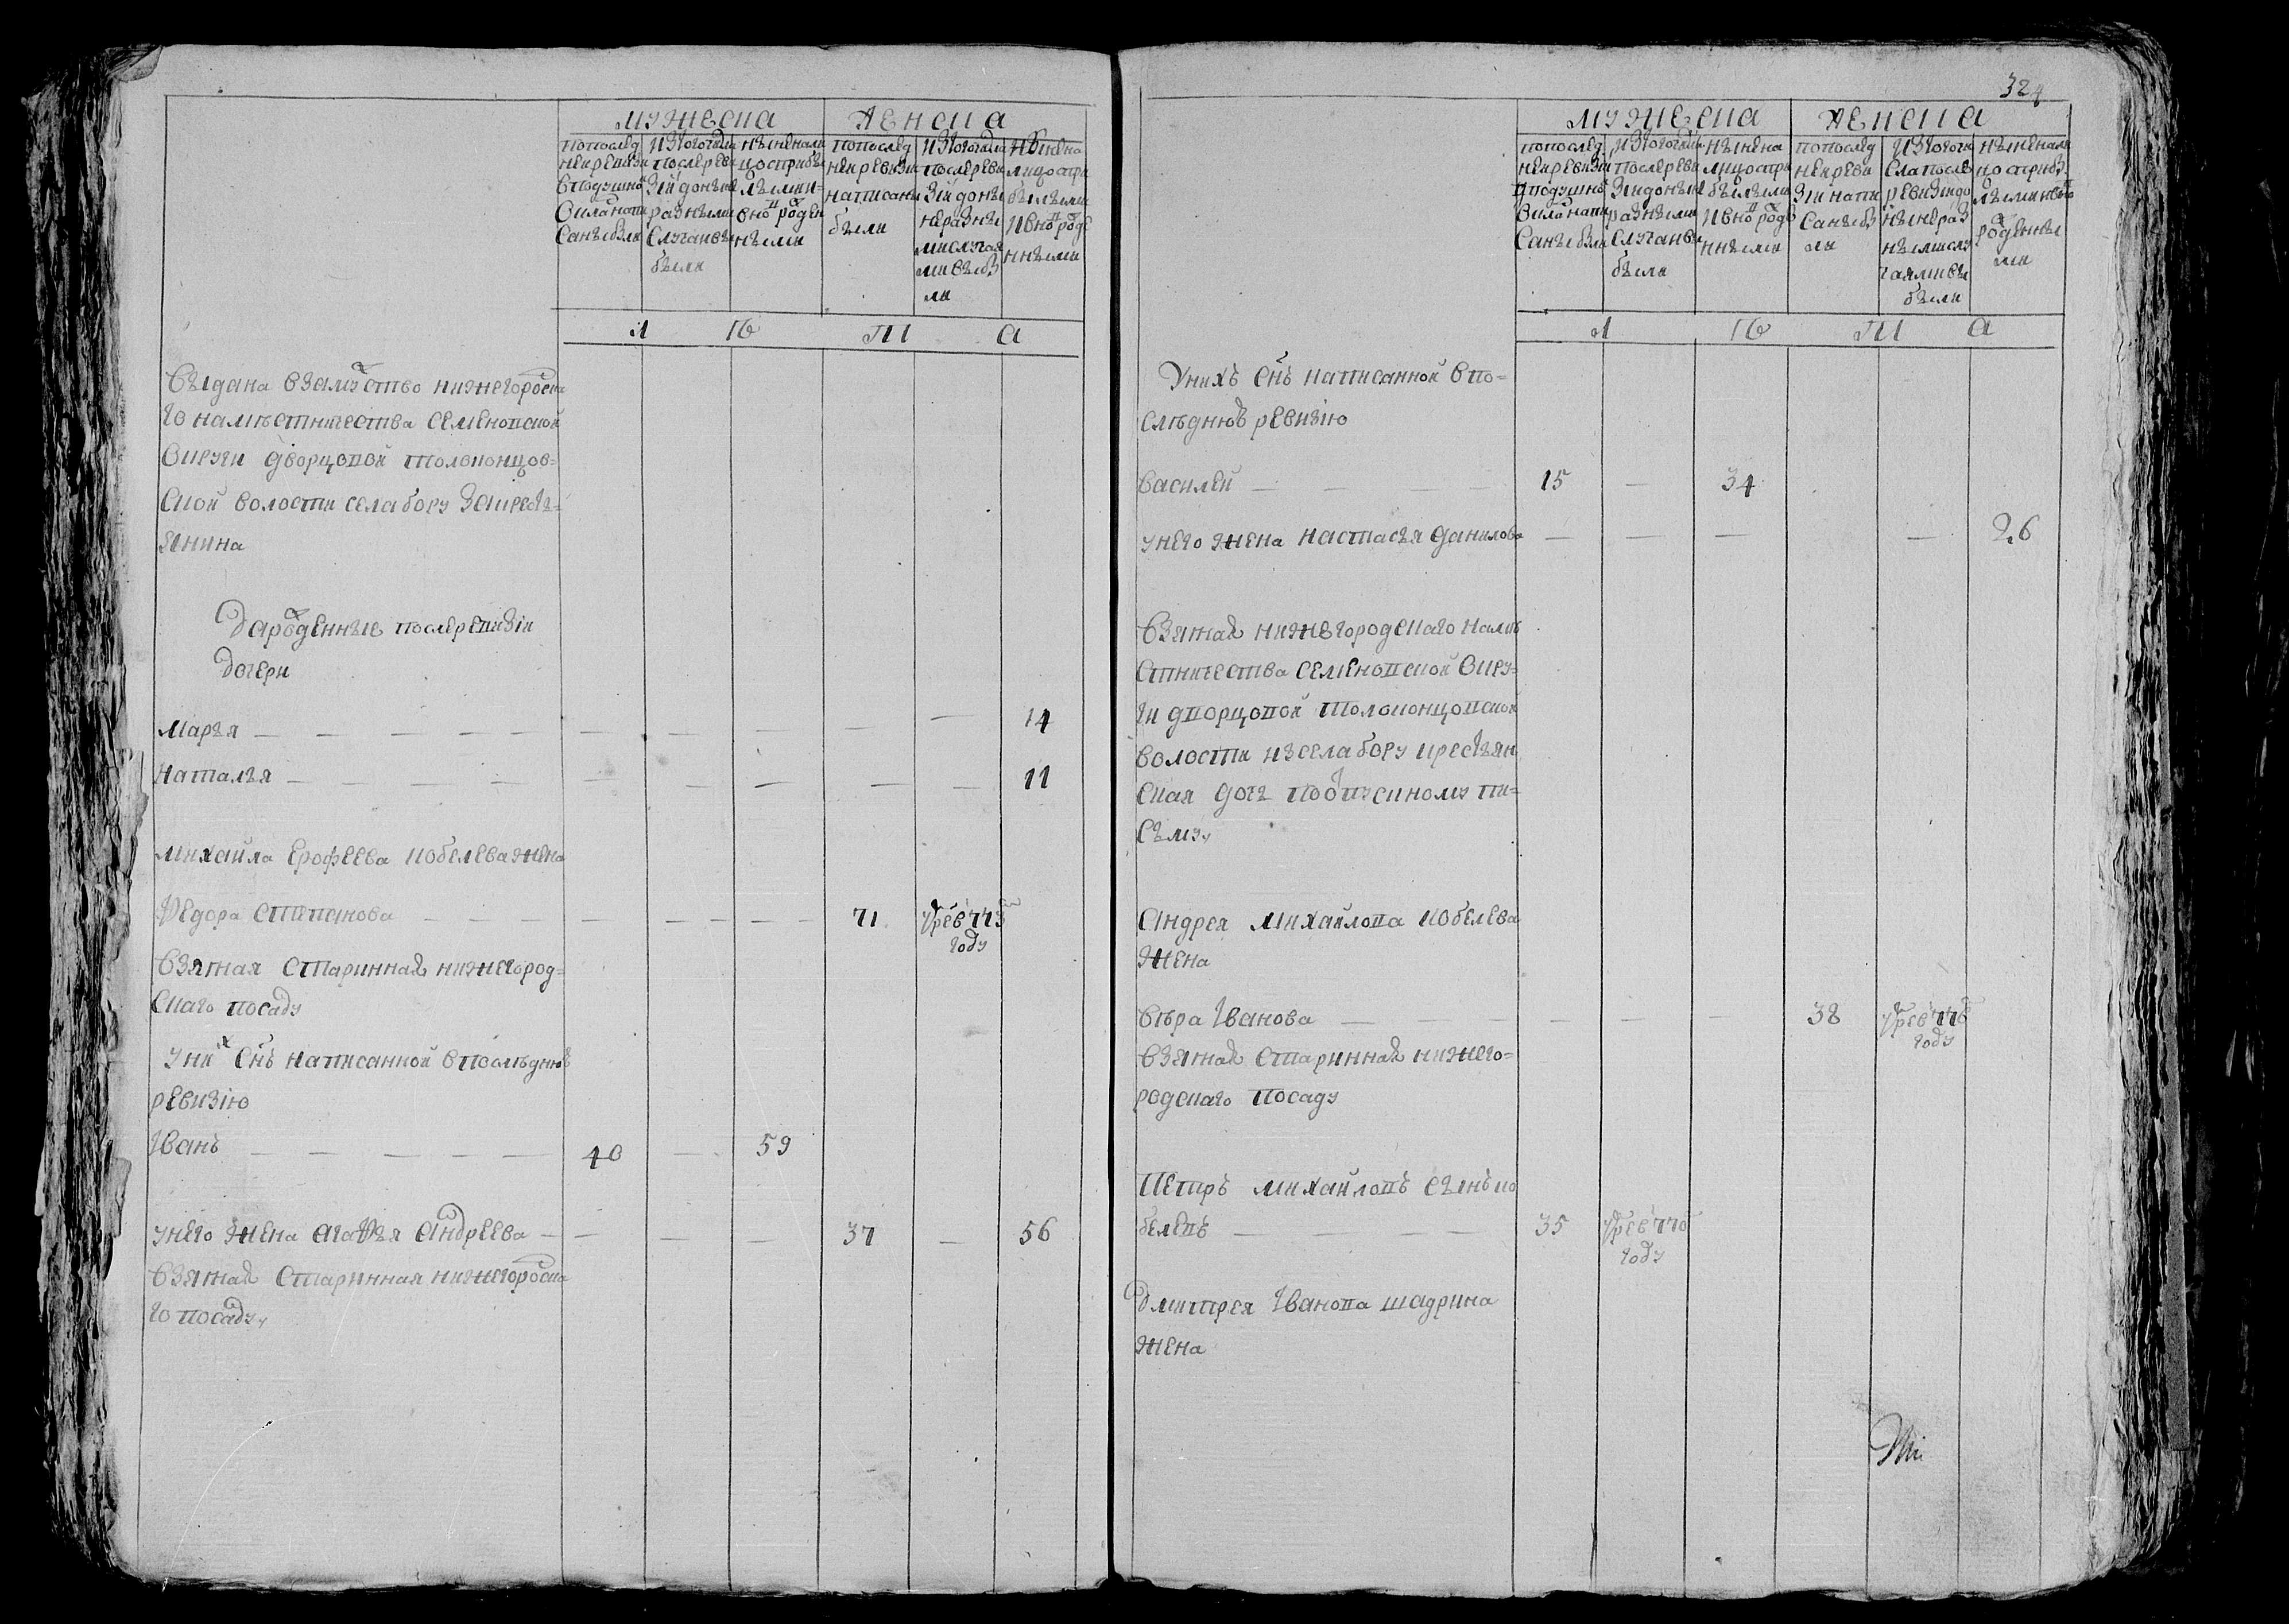 мужеска
женска
попослед
ней ревизи
вподушно
окладъ напи
саны были
изтого числа
послереви
зіи до ныне
разными
случаи вы
были
ныне нали
цо сприбы
лыми и
вновь рожден
ными
попослед
ней ревизи
написаны
были
изтого числа
послереви
зіи до ны
не разны
ми случая
ми выбы
ли
ныне на
лицо спри
былыми
и вновь рожде
нными
л ѣ т а
выдана взамужство нижегородска
го наместничества семеновской
округи дворцовой толоконцов=
ской волости села бору закресть=
янина
Да рожденные после ревизіи
дочери
марья — — — 14
наталья — — — 11
михайла ерофеева кобелева жена
федора степанова — — — 71 умре в 773
году
взятая старинная нижегород=
скаго посаду
у них снъ написанной впоследнюю
ревизию
іванъ — — — 40 — 59
у него жена агафья андреева — — — 37 — 56
взятая стариннаяя нижегородска
го посаду
324
мужеска
женска
попослед
ней ревизи
вподушно
окладъ напи
саны были
изтого числа
послереви
зіи до ныне
разными
случаи вы
были
ныне на
лицо спри
былыми
и вновь рожде
нными
попослед
ней реви
зіи напи
саны бы
ли
изтого чи
сла после
ревизіи до
ныне раз
ными слу
чаями вы
были
ныне нали
цо сприбы
лыми и вновь
рожденны
ми
л ѣ т а
У нихъ снъ написанной впо=
следнюю ревизію
василей — — — — 15 — 34
у него жена настасья данилова — — — — 26
взятая нижегородскаго наме
стничества семеновской окру=
ги дворцовой толоконцовской
волости из села бору крестьян
ская дочь по отпускному пи=
сьму
андрея михайлова кобелева
жена
вера іванова — — — — — — 38 умре в 776
году
взятая старинная нижего=
родскаго посаду
Петръ михайловъ сынъ ко
белевъ — — — — 35 умре в 770
году
Дмитрея іванова шадрина
жена